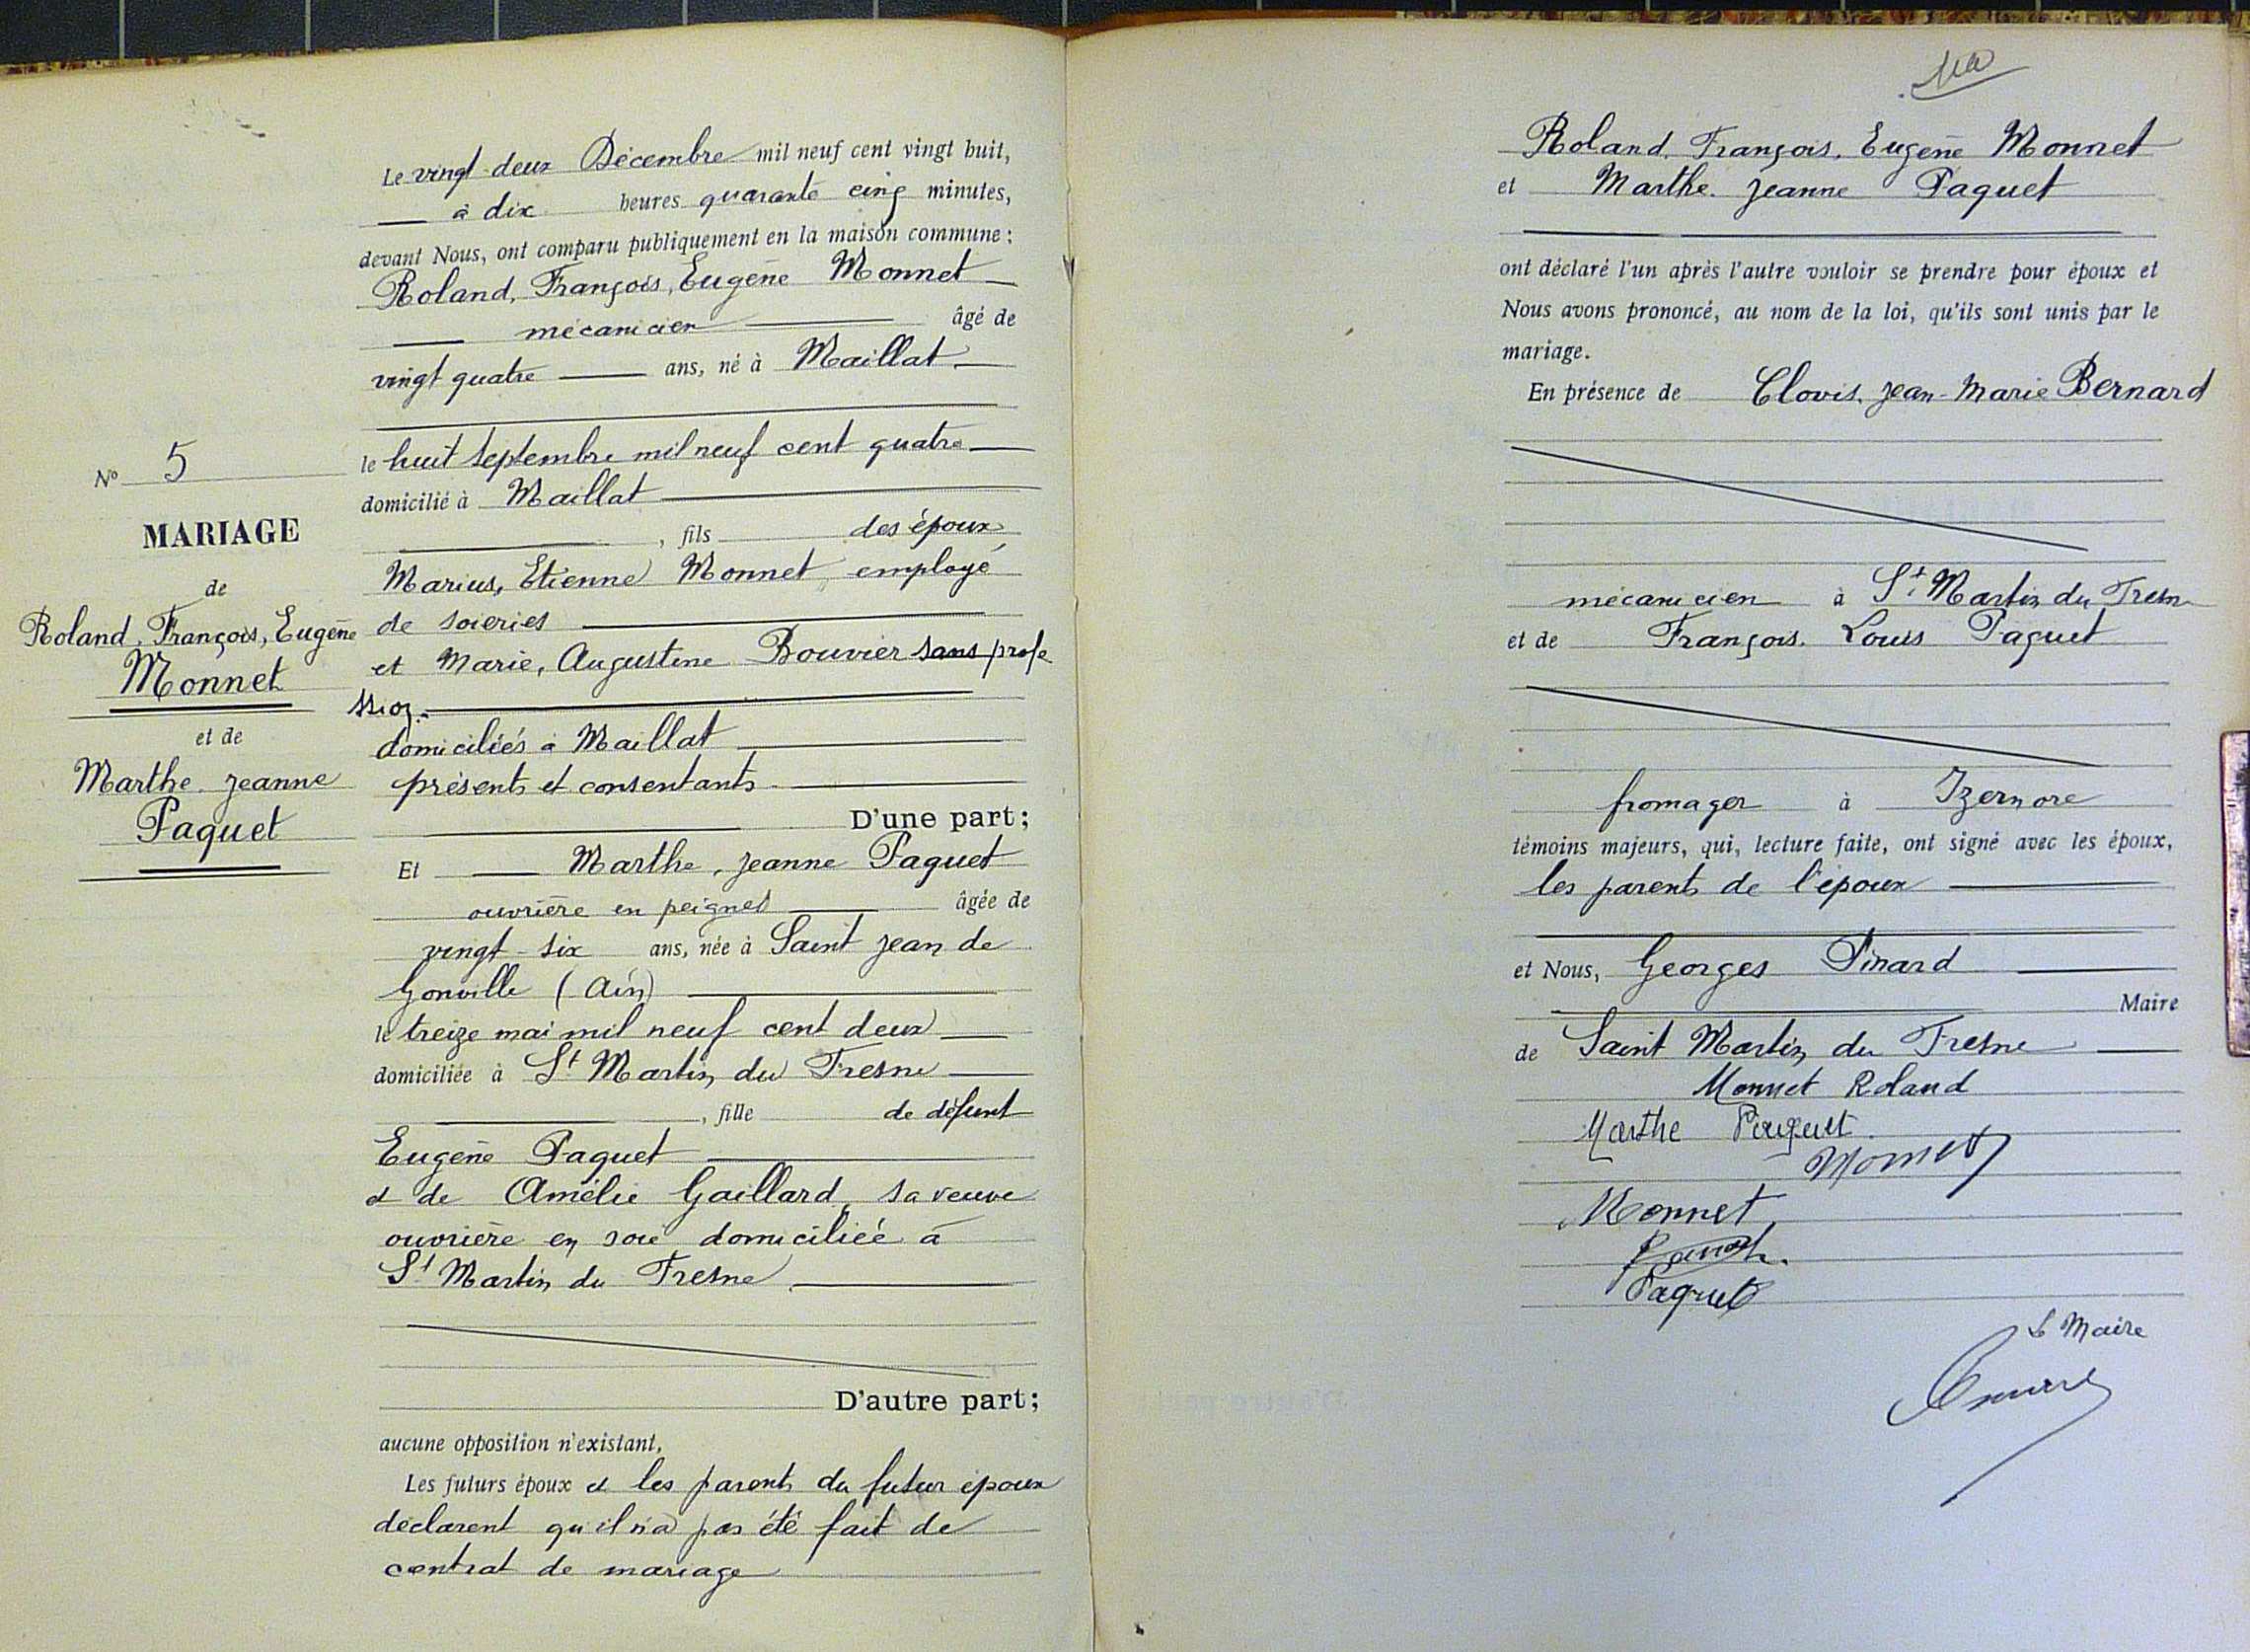 Le vingt-deux Décembre mil neuf cent vingt huit,
à dix heures quarante cinq minutes,
devant Nous, ont comparu publiquement en la maison commune :
Roland, François, Eugène Monnet
mécanicien âgé de
vingt quatre ans, né à Maillat
le huit septembre mil neuf cent quatre
domicilié à Maillat
, fils des époux
Marius, Etienne Monnet, employé
de soieries
et Marie, Augustine Bouvier sans profe
ssion.
domiciliés à Maillat
présents et consentants
D'une part;
Et Marthe, Jeanne Paquet
ouvrière en peignes âgée de
vingt-six ans, née à Saint Jean de
Gonville (Ain)
le treize mai mil neuf cent deux
domiciliée à St Martin du Fresne
, fille de défunt
Eugène Paquet
et de Amélie Gaillard, sa veuve
ouvrière en soie domiciliée à
St Martin du Fresne
D'autre part;
aucune opposition n'existant,
Les futurs époux et les parents du futur époux
déclarent qu'il n'a pas été fait de
contrat de mariage
No 5
MARIAGE
de
Roland, François, Eugène
Monnet
et de
Marthe, Jeanne
Paquet
Roland, François, Eugène Monnet
et Marthe, Jeanne Paquet
ont déclaré l'un après l'autre vouloir se prendre pour époux et
Nous avons prononcé, au nom de la loi, qu'ils sont unis par le
mariage.
En présence de Clovis, Jean-Marie Bernard
mécanicien à St Martin du Fresne
et de François, Louis Paquet
fromager à Izernore
témoins majeurs, qui, lecture faite, ont signé avec les époux,
les parents de l'époux
et Nous, Georges Pinard
Maire
de Saint Martin du Fresne
Monnet Roland
Marthe Paquet
Monnet
Monnet
Paquet
Le Maire